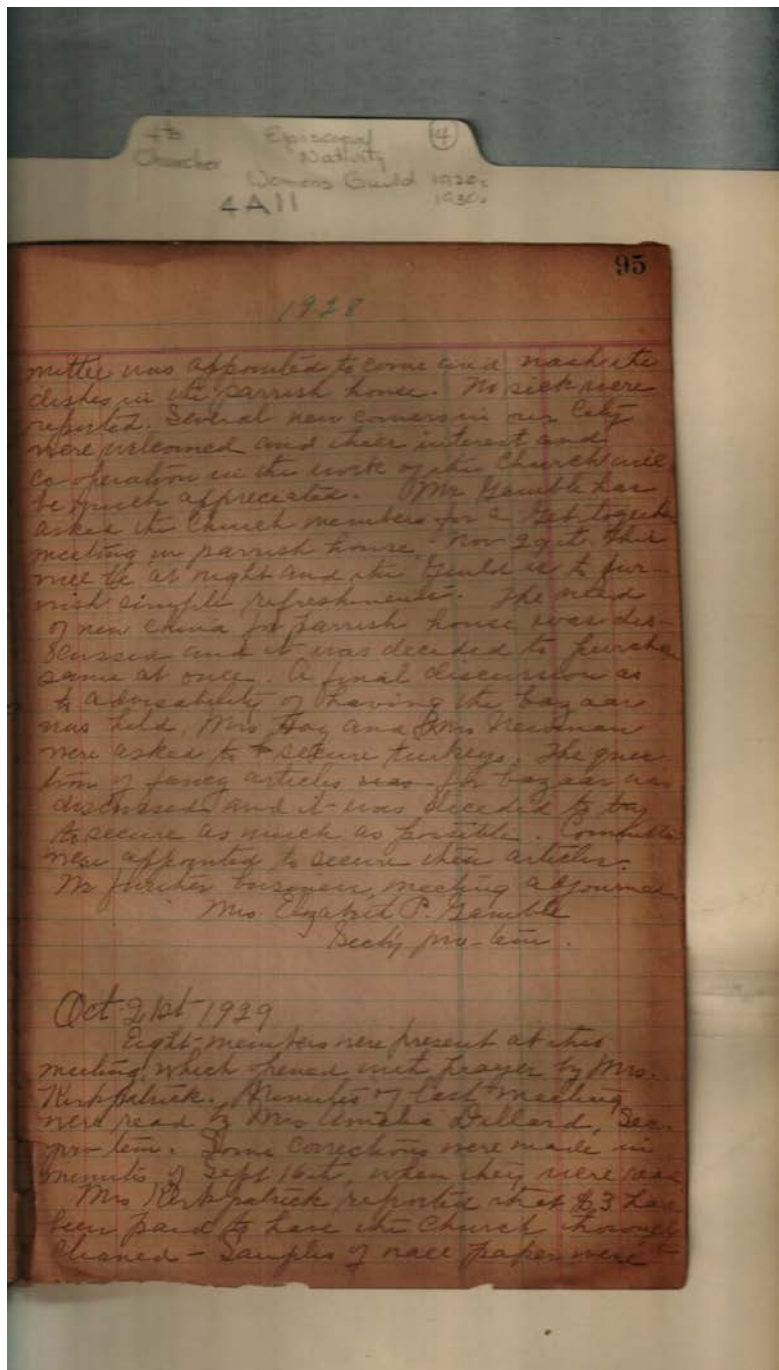 4th Episcopal 4
Church Nativity
Womens Guild 1920s
4A11 1930s
95
1928
mittee was appointed to come and wash the
dishes in the parrish house. No sick were
reported. Several new comers in our City
were welcomed and their interest and
co-operation in the work of the Church will
be much appreciated. Mr Gamble has
asked the Church members for a Get together
meeting in parrish house Nov 29th. This
will be at night and the Guild is to fur-
nish simple refreshments. The need
of new China for parrish house was dis-
cussed and it was decided to purchase
same at once. A final discussion as
to advisability of having the bazaar
was held. Mrs Hay and Mrs Newman
were asked to secure turkeys. The ques
tion of fancy articles for bazaar was
discussed and it was decided to try
to secure as much as possible. Committee
were appointed to secure these articles.
No further business, meeting adjourned
Mrs. Elizabeth P. Gamble
Sect'y pro-tem.
Oct 21st 1929
Eight members were present at this
meeting, which opened with prayer by Mrs.
Kirkpatrick. Minutes of last meeting
were read by Mrs Amelia Dillard, Sec.
pro-tem. Some corrections were made in
minutes of Sept 16th, when they were read
Mrs Kirkpatrick reported that $3 has
been paid to have the Church thoroughly
cleaned - Samples of wall paper were